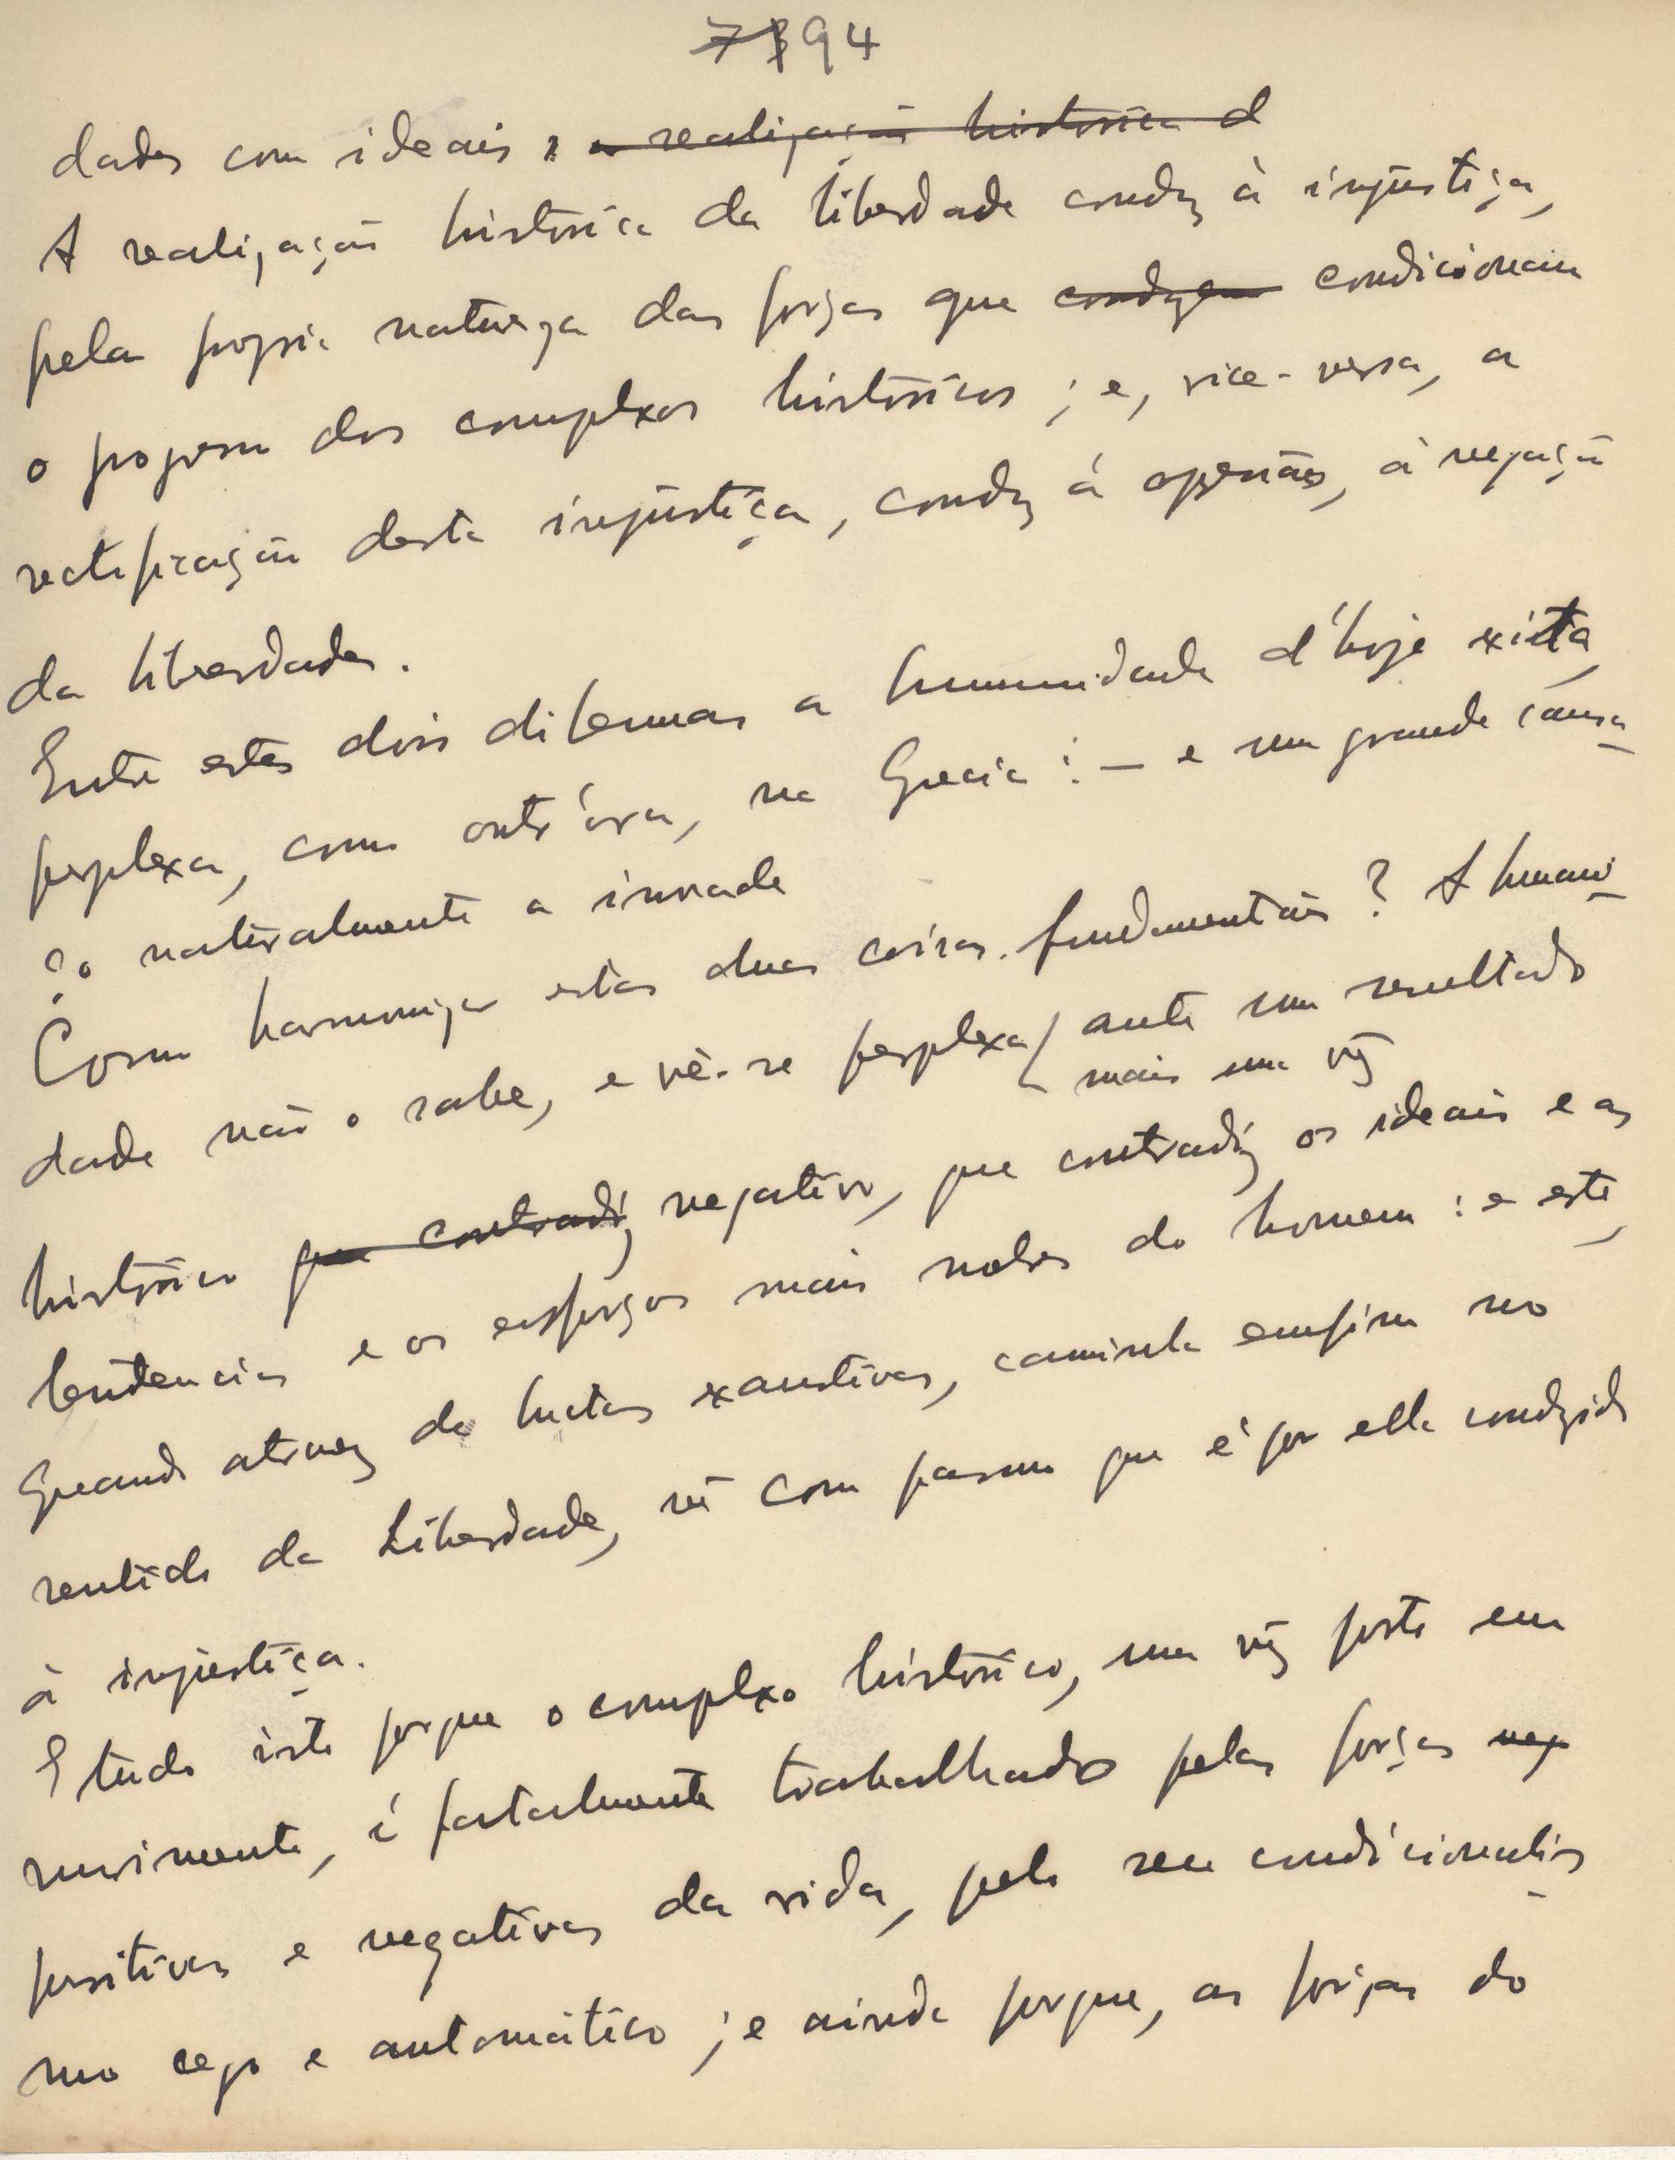 94
dades com ideais: ~~a realização historica d~~
A realização historica da liberdade conduz à injustiça,
pela propria natureza das forças que ~~conduzem~~ condicionam
o progresso dos complexos históricos; e, vice-versa, a
rectificação desta injustiça, conduz á opressão, á negação
da liberdade.
Entre estes dois dilemas a humanidade d'hoje exita,
perplexa, como outr'óra, na Grecia: — e um grande cansa-
ço naturalmente a invade
Como harmonizar estas duas coisas fundamentais? A humani-
dade não o sabe, e vê-se perplexa ante um resultado
mais uma vez
histórico ~~que contradiz~~ negativo, que contradiz os ideais e as
tendencias e os esforços mais nobres do homem: e este,
quando atravez de luctas exaustivas, caminha emfim no
sentido da Liberdade, vê com pasmo que é por ella conduzido
à injustiça.
E tudo isto porque o complexo histórico, uma vez posto em
movimento, é fatalmente trabalhado pelas forças ~~neg~~
positivas e negativas da vida, pelo seu condicionalis-
mo cego e automático; e ainda porque, as forças do